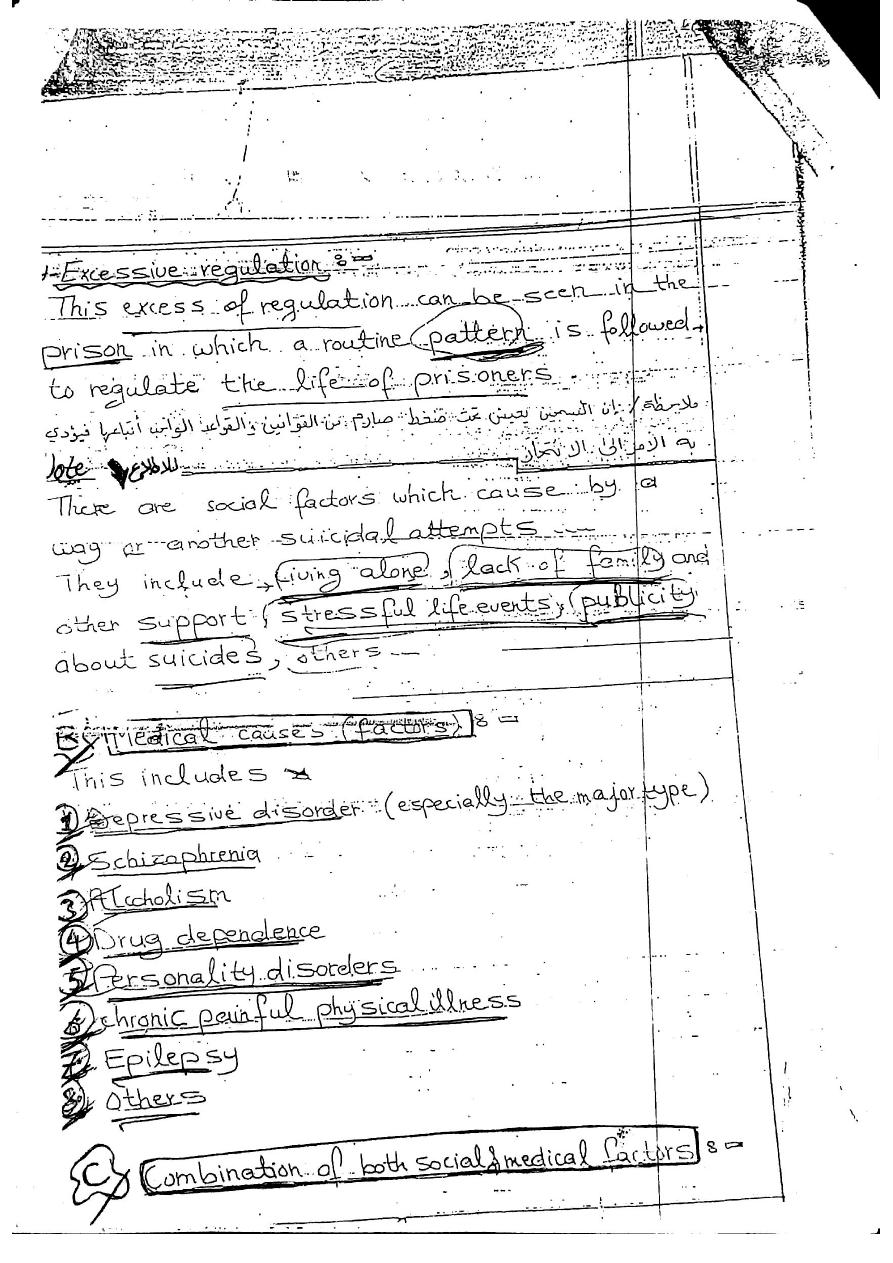 1- Excessive regulation :-
This excess of regulation can be seen in the
prison in which a routine pattern is followed
to regulate the life of prisoners.
ملاحظة / إن السجين يعيش تحت ضغط صارم من القوانين والقواعد الواجب أتباعها فيؤدي
به الأمر إلى الانتحار
Note للاطلاع
There are social factors which cause by a
way or another suicidal attempts
They include, living alone, lack of family and
other support, stressful life events, publicity
about suicides, others
B Medical causes (factors) :-
This includes
1 Depressive disorder (especially the major type)
2 Schizophrenia
3 Alcoholism
4 Drug dependence
5 Personality disorders
6 chronic painful physical illness
7 Epilepsy
8 Others
C Combination of both social & medical factors :-